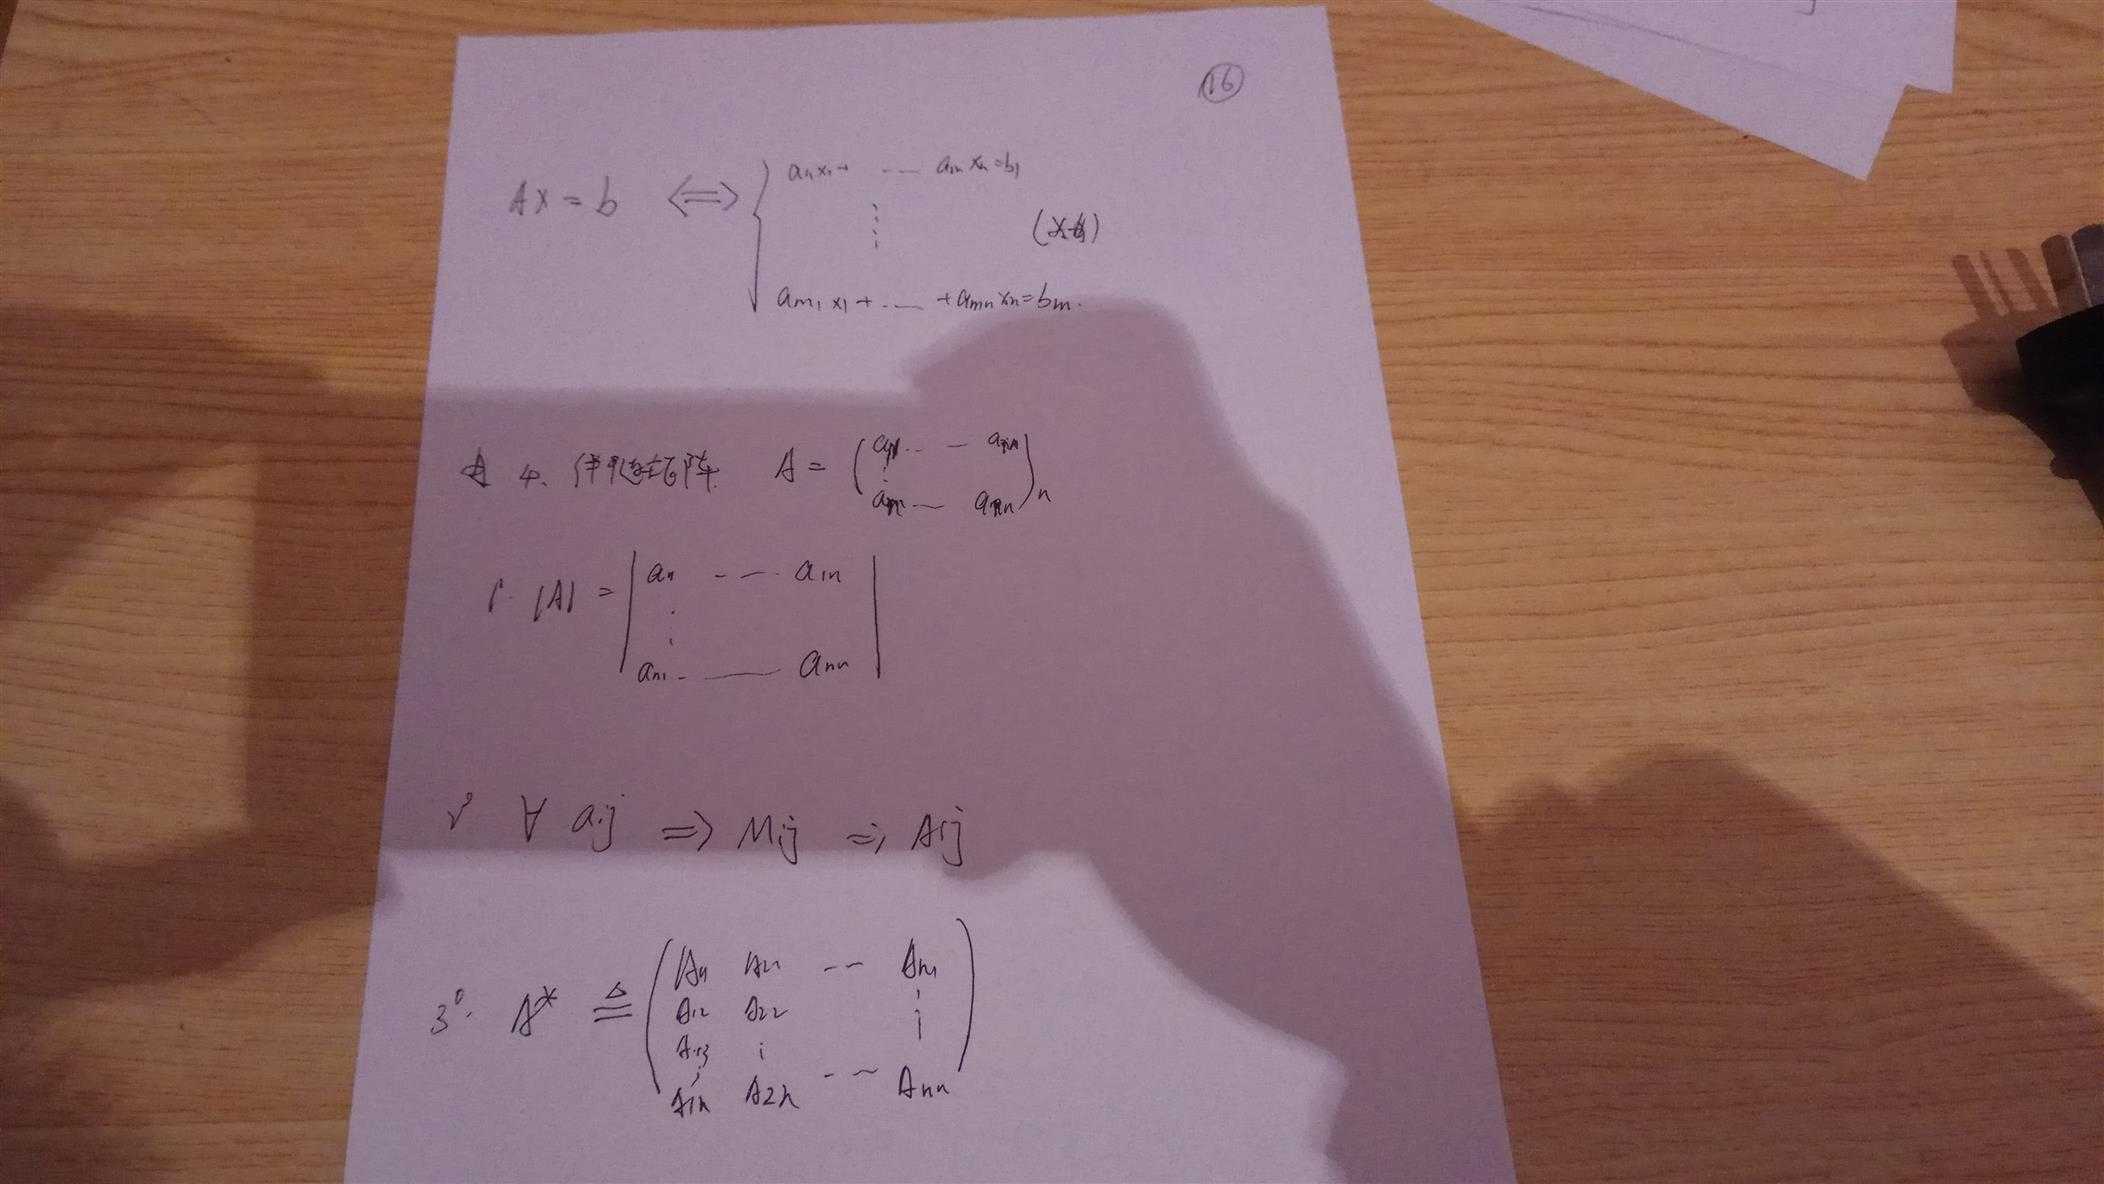 16
AX = b ⟺ { a11x1+ ... a1nxn=b1
⋮
am1x1+ ... +amnxn=bm.
4. 伴随矩阵 A = ( a11 ... a1n
⋮
an1 ... ann )n
1° |A| = | a11 ... a1n
⋮
an1 ... ann |
2° ∀ aij ⇒ Mij ⇒ Aij
3°. A* ≜ ( A11 A21 ... An1
A12 A22 ⋮
A13 ⋮
A1n A2n ... Ann )